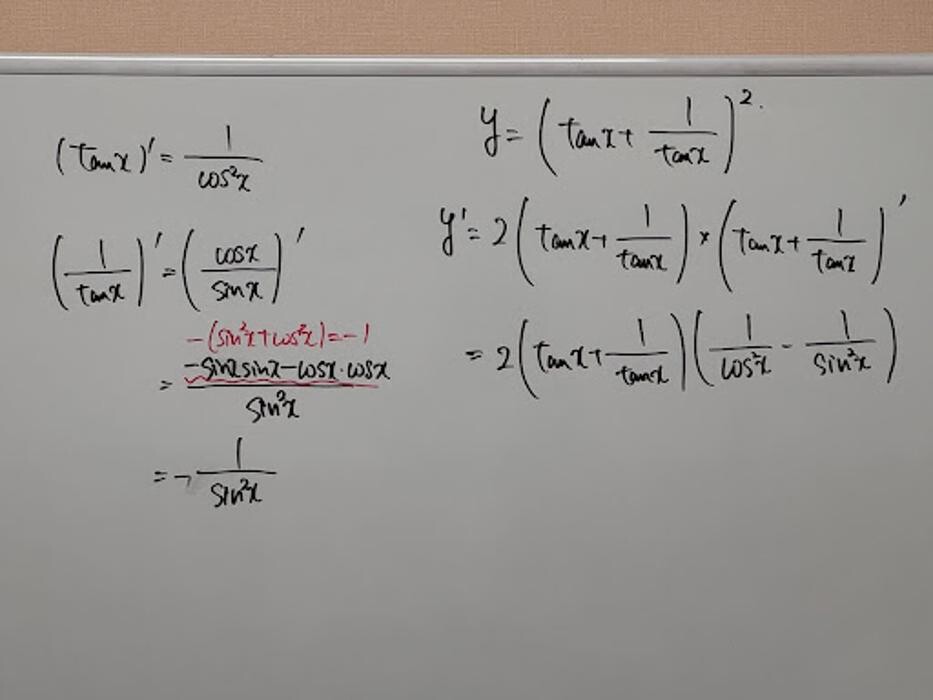 (tanx)' = 1/cos²x
(1/tanx)' = (cosx/sinx)'
-(sin²x+cos²x)=-1
= (-sinxsinx-cosx·cosx)/sin²x
= -1/sin²x
y = (tanx + 1/tanx)².
y' = 2(tanx + 1/tanx) × (tanx + 1/tanx)'
= 2(tanx + 1/tanx)(1/cos²x - 1/sin²x)